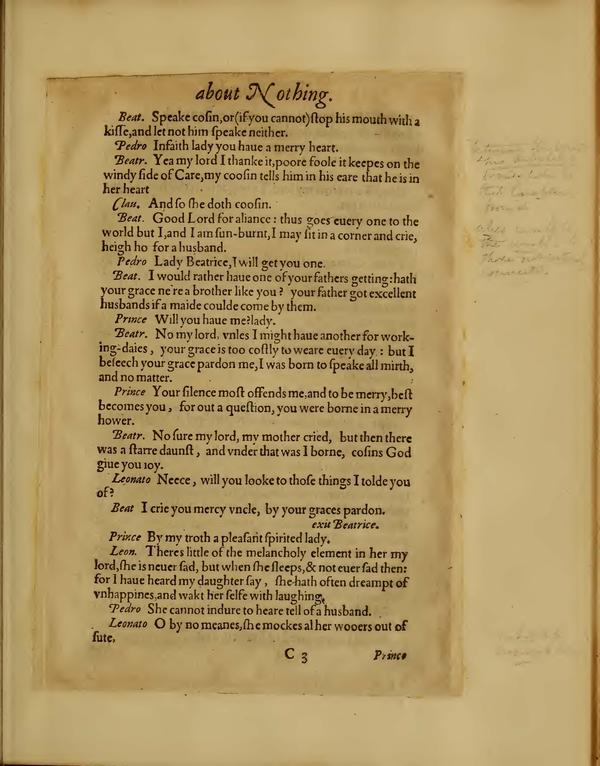 about Nothing.
Beat. Speake cosin, or (if you cannot) stop his mouth with a
kisse, and let not him speake neither.
Pedro Infaith lady you haue a merry heart.
Beatr. Yea my lord I thanke it, poore foole it keepes on the
windy side of Care, my coosin tells him in his eare that he is in
her heart
Clau. And so she doth coosin.
Beat. Good Lord for aliance: thus goes euery one to the
world but I, and I am sun-burnt, I may sit in a corner and crie,
heigh ho for a husband.
Pedro Lady Beatrice, I will get you one.
Beat. I would rather haue one of your fathers getting: hath
your grace ne're a brother like you? your father got excellent
husbands if a maide coulde come by them.
Prince Will you haue me? lady.
Beatr. No my lord, vnles I might haue another for work-
ing-daies, your grace is too costly to weare euery day: but I
beseech your grace pardon me, I was born to speake all mirth,
and no matter.
Prince Your silence most offends me, and to be merry, best
becomes you, for out a question, you were borne in a merry
hower.
Beatr. No sure my lord, my mother cried, but then there
was a starre daunst, and vnder that was I borne, cosins God
giue you ioy.
Leonato Neece, will you looke to those things I tolde you
of?
Beat I crie you mercy vncle, by your graces pardon.
exit Beatrice.
Prince By my troth a pleasant spirited lady.
Leon. Theres little of the melancholy element in her my
lord, she is neuer sad, but when she sleeps, & not euer sad then:
for I haue heard my daughter say, she hath often dreampt of
vnhappines, and wakt her selfe with laughing.
Pedro She cannot indure to heare tell of a husband.
Leonato O by no meanes, she mockes al her wooers out of
sute.
C 3 Prince